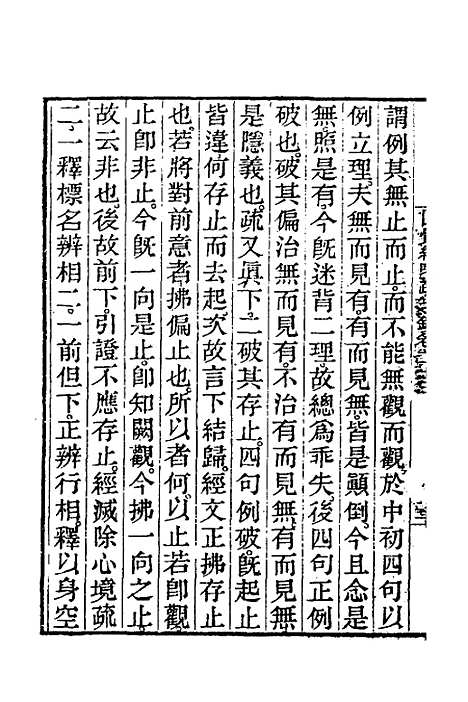 謂例其無止而止。而不能無觀而觀。於中初四句以
例立理。夫無而見有。有而見無。皆是顚倒。今且念是
無照是有。今旣迷背二理。故總爲乖失。後四句正例
破也。破其偏治無而見有。不治有而見無。有而見無
是隱義也。疏又眞下。二破其存止。四句例破。旣起止
皆違何存止而去起。次故言下結歸。經文正拂存止
也。若將對前意者。拂偏止也。所以者何。以止若卽觀
止卽非止。今旣一向是止。卽知闕觀。今拂一向之止。
故云非也。後故前下。引證不應存止。經滅除心境疏
二。一釋標名辨相二。一前但下。正辨行相。釋以身空